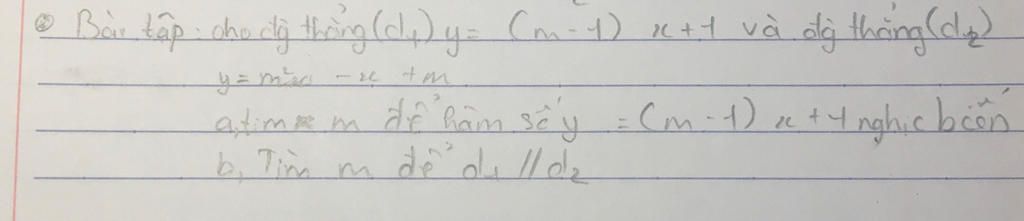 Bài tập: cho đg thẳng (d1) y = (m-1) x+1 và đg thẳng (d2)
y = m²x - x + m
a, tìm m để hàm số y = (m-1) x+1 nghịc b iến
b, Tìm m để d1 // d2